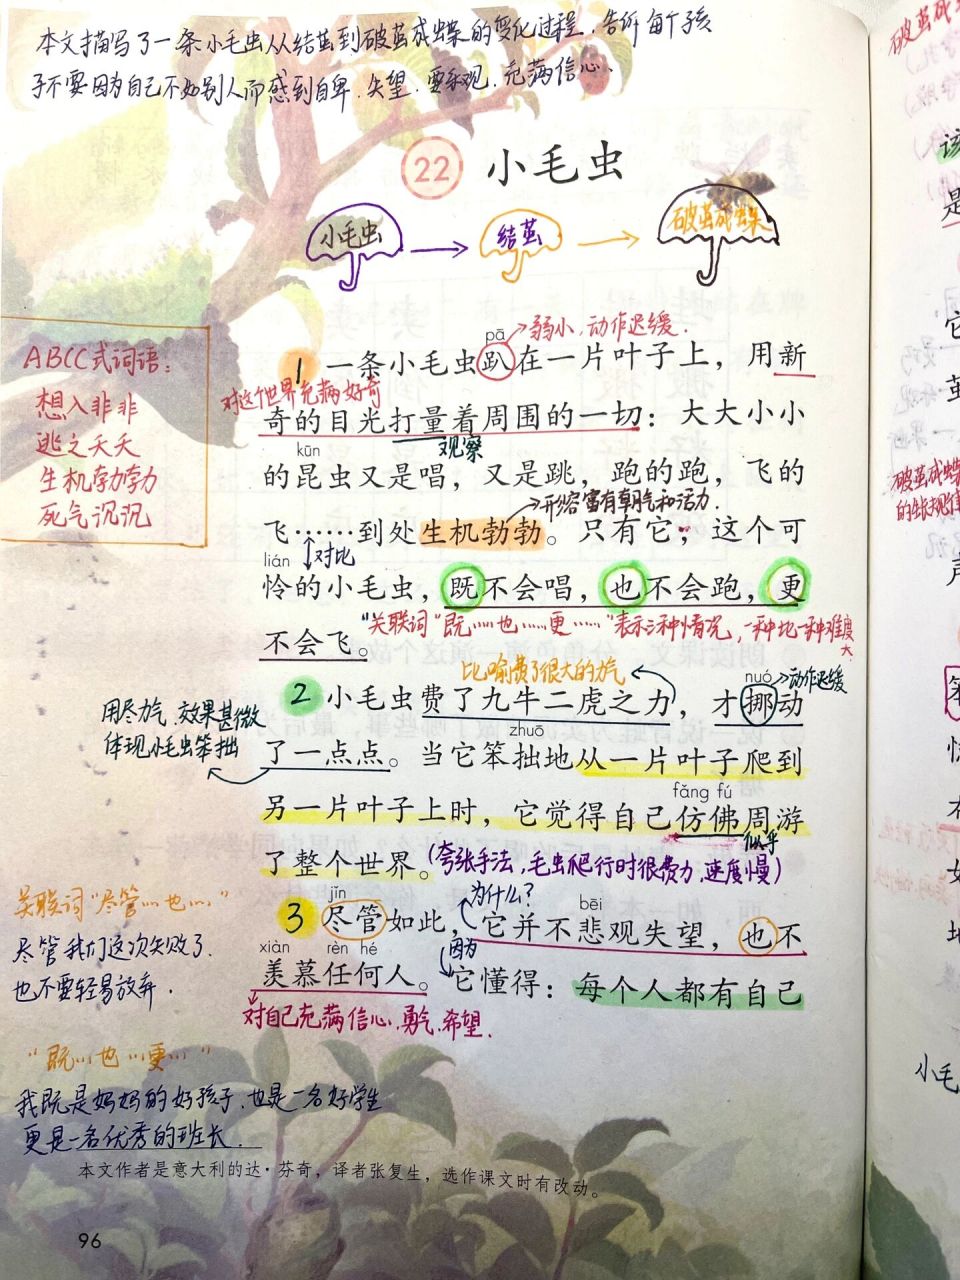 本文描写了一条小毛虫从结茧到破茧成蝶的变化过程,告诉每个孩
子不要因为自己不如别人而感到自卑、失望,要乐观,充满信心。
22 小毛虫
小毛虫 → 结茧 → 破茧成蝶
ABCC式词语:
想入非非
逃之夭夭
生机勃勃
死气沉沉
pā
弱小,动作迟缓.
1 一条小毛虫趴在一片叶子上,用新
对这个世界充满好奇
奇的目光打量着周围的一切:大大小小
kūn
观察
的昆虫又是唱,又是跳,跑的跑,飞的
形容富有朝气和活力.
飞……到处生机勃勃。只有它,这个可
lián
对比
怜的小毛虫,既不会唱,也不会跑,更
"关联词"既……也……更……"表示三种情况,一种比一种难度大.
不会飞。
比喻费了很大的力气
nuó
动作迟缓
2 小毛虫费了九牛二虎之力,才挪动
用尽力气,效果甚微
体现小毛虫笨拙
zhuō
了一点点。当它笨拙地从一片叶子爬到
fǎng fú
另一片叶子上时,它觉得自己仿佛周游
似乎
了整个世界。(夸张手法,毛虫爬行时很费力,速度慢)
jǐn
为什么?
bēi
3 尽管如此,它并不悲观失望,也不
xiàn rèn hé
因为
羡慕任何人。它懂得:每个人都有自己
对自己充满信心、勇气、希望.
关联词"尽管……也……"
尽管我们这次失败了.
也不要轻易放弃.
"既……也……更……"
我既是妈妈的好孩子,也是一名好学生
更是一名优秀的班长.
本文作者是意大利的达·芬奇,译者张复生,选作课文时有改动。
96
破茧成蝶
小毛